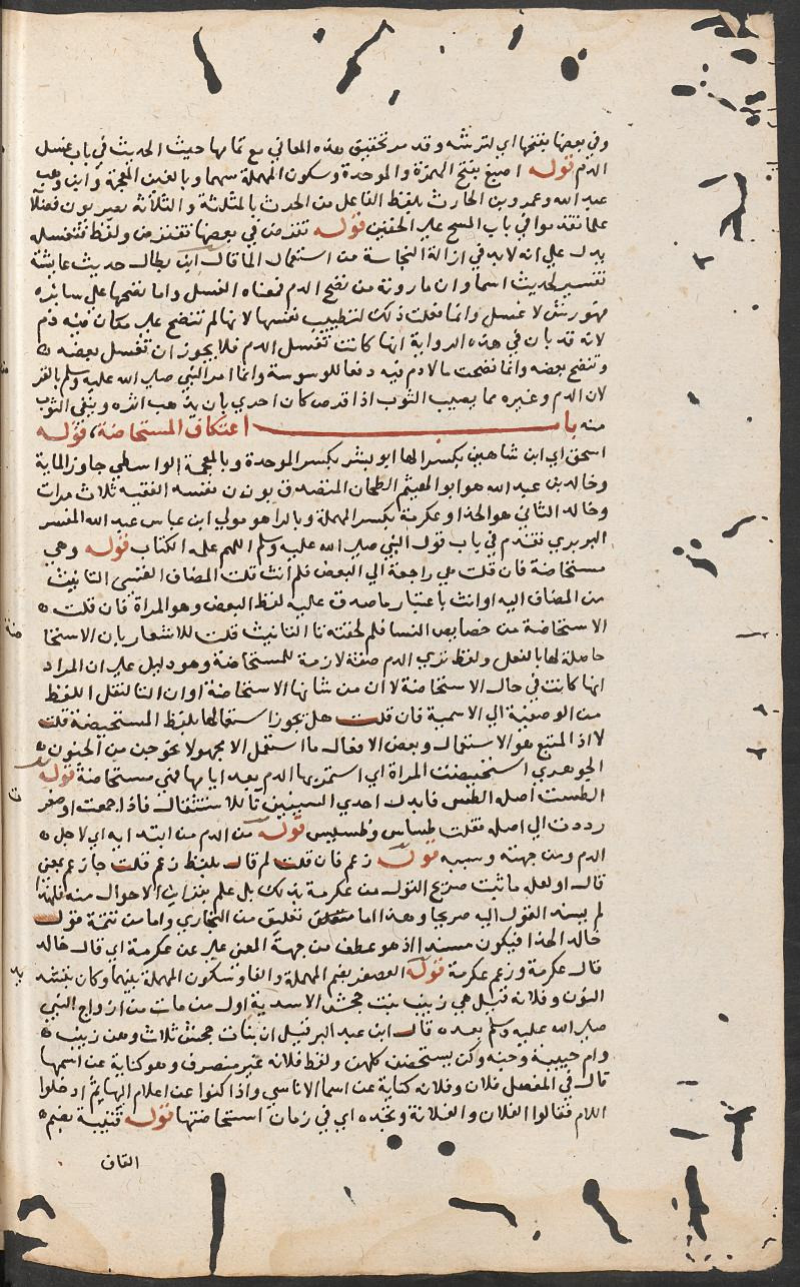 وفي بعضها بفتحها اي لترشه وقد مر تحقيق هذه المعاني مع تمامها حيث الحديث في باب غسل
الدم قوله اصبغ بفتح الهمزة والموحدة وسكون المهملة بينهما وبالغين المعجمة وابن وهب
عبد الله وعمرو بن الحارث بلفظ الفاعل من الحرث بالمثلثة والثلاثة مصريون فضلا
علما تقدموا في باب المسح على الخفين قوله تقرص في بعضها تقترص ولفظ فتغسله
يدل علي انه لابد في ازالة النجاسة من استعمال الما قال ابن بطال حديث عايشة
تفسير لحديث اسما وان ما روته من نضح الدم فمعناه الغسل واما نضحها علي سايره
فهو رش لا غسل وانما فعلت ذلك لتطييب نفسها لانها لم تنضح علي مكان فيه دم
لانه قد بان في هذه الرواية انها كانت تغسل الدم فلا يجوز ان تغسل بعضه
وتنضح بعضه وانما نضحت ما لا دم فيه دفعا للوسوسة وانما امر النبي صلي الله عليه وسلم بالقر
لان الدم وغيره مما يصيب الثوب اذا قرص كان احري بان يذهب اثره وينقي الثوب
منه باب اعتكاف المستحاضة، قوله
اسحق اي ابن شاهين بكسر الها ابو بشر بكسر الموحدة وبالمعجمة الواسطي جاوز الماية
وخالد بن عبد الله هو ابو الهيثم الطحان المتصدق بوزن نفسه الفقيه ثلاث مرات
وخالد الثاني هو الحذا وعكرمة بكسر المهملة وبالرا هو مولي ابن عباس عبد الله المفسر
البربري تقدم في باب قول النبي صلي الله عليه وسلم اللهم علمه الكتاب قوله وهي
مستحاضة فان قلت هي راجعة الي البعض فلم انث قلت المضاف اكتسى التانيث
من المضاف اليه او انث باعتبار ما صدق عليه لفظ البعض وهو المراة فان قلت
الاستحاضة من خصايص النسا فلم لحقته تا التانيث قلت للاشعار بان الاستحا
حاصلة لها بالفعل ولفظ تري الدم صفة لازمة للمستحاضة وهو دليل علي ان المراد
انها كانت في حال الاستحاضة لا ان من شانها الاستحاضة او ان التا لنقل اللفظ
من الوصفية الي الاسمية فان قلت هل يجوز استعمالها بلفظ المستحيضة قلت
لا اذ المتبع هو الاستعمال وبعض الافعال ما استعمل الا مجهولا نحو جن من الجنون
الجوهري استحيضت المراة اي استمر بها الدم بعد ايامها فهي مستحاضة قوله
الطست اصله الطس فابدل احدي السينين تا للاستثقال فاذا جمعت او صغر
رددت الي اصله فقلت طساس وطسيس قوله من الدم من ابتدايه اي لاجل
الدم ومن جهته وسببه قوله زعم فان قلت لم قال بلفظ زعم قلت جا زعم بمعني
قال او لعله ما ثبت صريح القول من عكرمة بذلك بل علم بقراين الاحوال منه فلهذا
لم يسند القول اليه صريحا وهذا اما تعليق من البخاري واما من تتمة قول
خالد الحذا فيكون مسندا اذ هو عطف من جهة المعني علي عن عكرمة اي قال خالد
قال عكرمة وزعم عكرمة قوله العصفر بضم المهملة والفا وسكون المهملة بينهما وكان بتشد
النون وفلانة قيل هي زينب بنت جحش الاسدية اول من مات من ازواج النبي
صلي الله عليه وسلم بعده قال ابن عبد البر قيل ان بنات جحش ثلاث وهن زينب
وام حبيبة وحمنة وكن يستحضن كلهن ولفظ فلانة غير منصرف وهو كناية عن اسمها
قال في المفصل فلان وفلانة كناية عن اسما الاناسي واذا كنوا عن اعلام البهايم ادخلوا
اللام فقالوا الفلان والفلانة وتجده اي في زمان استحاضتها قوله قتيبة بضم
القاف